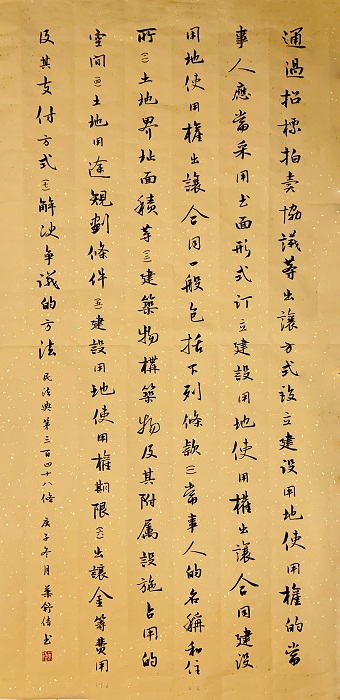 通過招標拍賣協議等出讓方式設立建設用地使用權的當
事人應當采用书面形式订立建設用地使用權出讓合同建設
用地使用權出讓合同一般包括下列條款(一)當事人的名稱和住
所(二)土地界址面積等(三)建築物構築物及其附属設施占用的
空间(四)土地用途規劃條件(五)建設用地使用權期限(六)出讓金等費用
及其支付方式(七)解决争議的方法 民法典第三百四十八條 庚子冬月 葉舒信书